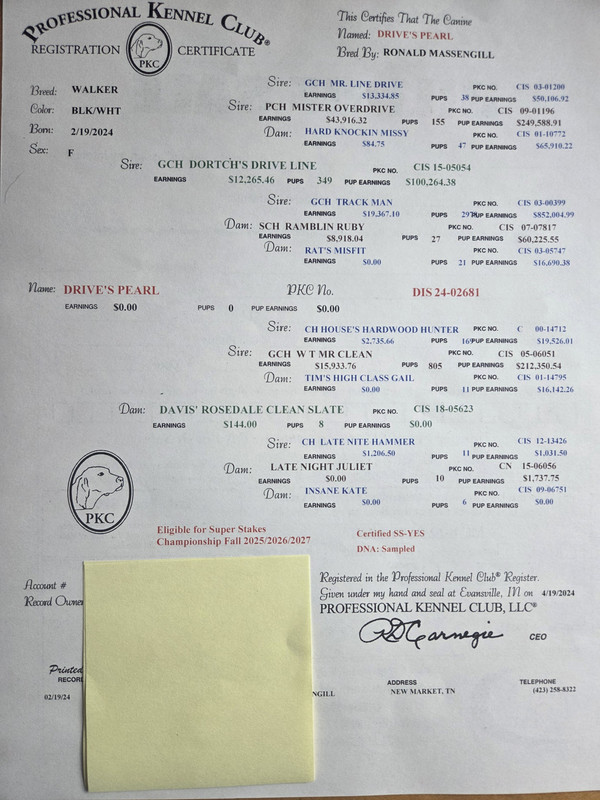 PROFESSIONAL KENNEL CLUB®
REGISTRATION CERTIFICATE
PKC
This Certifies That The Canine
Named: DRIVE'S PEARL
Bred By: RONALD MASSENGILL
Breed: WALKER
Color: BLK/WHT
Born: 2/19/2024
Sex: F
Sire: GCH MR. LINE DRIVE PKC NO. CIS 03-01200
EARNINGS $13,334.85 PUPS 38 PUP EARNINGS $50,106.92
Sire: PCH MISTER OVERDRIVE PKC NO. CIS 09-01196
EARNINGS $43,916.32 PUPS 155 PUP EARNINGS $249,588.91
Dam: HARD KNOCKIN MISSY CIS 01-10772
EARNINGS $84.75 PUPS 47 PUP EARNINGS $65,910.22
Sire: GCH DORTCH'S DRIVE LINE PKC NO. CIS 15-05054
EARNINGS $12,265.46 PUPS 349 PUP EARNINGS $100,264.38
Sire: GCH TRACK MAN PKC NO. CIS 03-00399
EARNINGS $19,367.10 PUPS PUP EARNINGS $852,004.99
Dam: SCH RAMBLIN RUBY PKC NO. CIS 07-07817
EARNINGS $8,918.04 PUPS 27 PUP EARNINGS $60,225.55
Dam: RAT'S MISFIT PKC NO. CIS 03-05747
EARNINGS $0.00 PUPS 21 PUP EARNINGS $16,690.38
Name: DRIVE'S PEARL PKC No. DIS 24-02681
EARNINGS $0.00 PUPS 0 PUP EARNINGS $0.00
Sire: CH HOUSE'S HARDWOOD HUNTER PKC NO. C 00-14712
EARNINGS $2,735.66 PUPS PUP EARNINGS $19,526.01
Sire: GCH W T MR CLEAN PKC NO. CIS 05-06051
EARNINGS $15,933.76 PUPS 805 PUP EARNINGS $212,350.54
Dam: TIM'S HIGH CLASS GAIL PKC NO. CIS 01-14795
EARNINGS $0.00 PUPS 11 PUP EARNINGS $16,142.26
Dam: DAVIS' ROSEDALE CLEAN SLATE PKC NO. CIS 18-05623
EARNINGS $144.00 PUPS 8 PUP EARNINGS $0.00
Sire: CH LATE NITE HAMMER PKC NO. CIS 12-13426
EARNINGS $1,206.50 PUPS 11 PUP EARNINGS $1,031.50
Dam: LATE NIGHT JULIET PKC NO. CN 15-06056
EARNINGS $0.00 PUPS 10 PUP EARNINGS $1,737.75
Dam: INSANE KATE PKC NO. CIS 09-06751
EARNINGS $0.00 PUPS 6 PUP EARNINGS $0.00
PKC
Eligible for Super Stakes
Championship Fall 2025/2026/2027
Certified SS-YES
DNA: Sampled
Account #
Record Owner
Registered in the Professional Kennel Club® Register.
Given under my hand and seal at Evansville, IN on 4/19/2024
PROFESSIONAL KENNEL CLUB, LLC®
RD Carnegie CEO
Printed
RECOR
ADDRESS TELEPHONE
02/19/24 NGILL NEW MARKET, TN (423) 258-8322